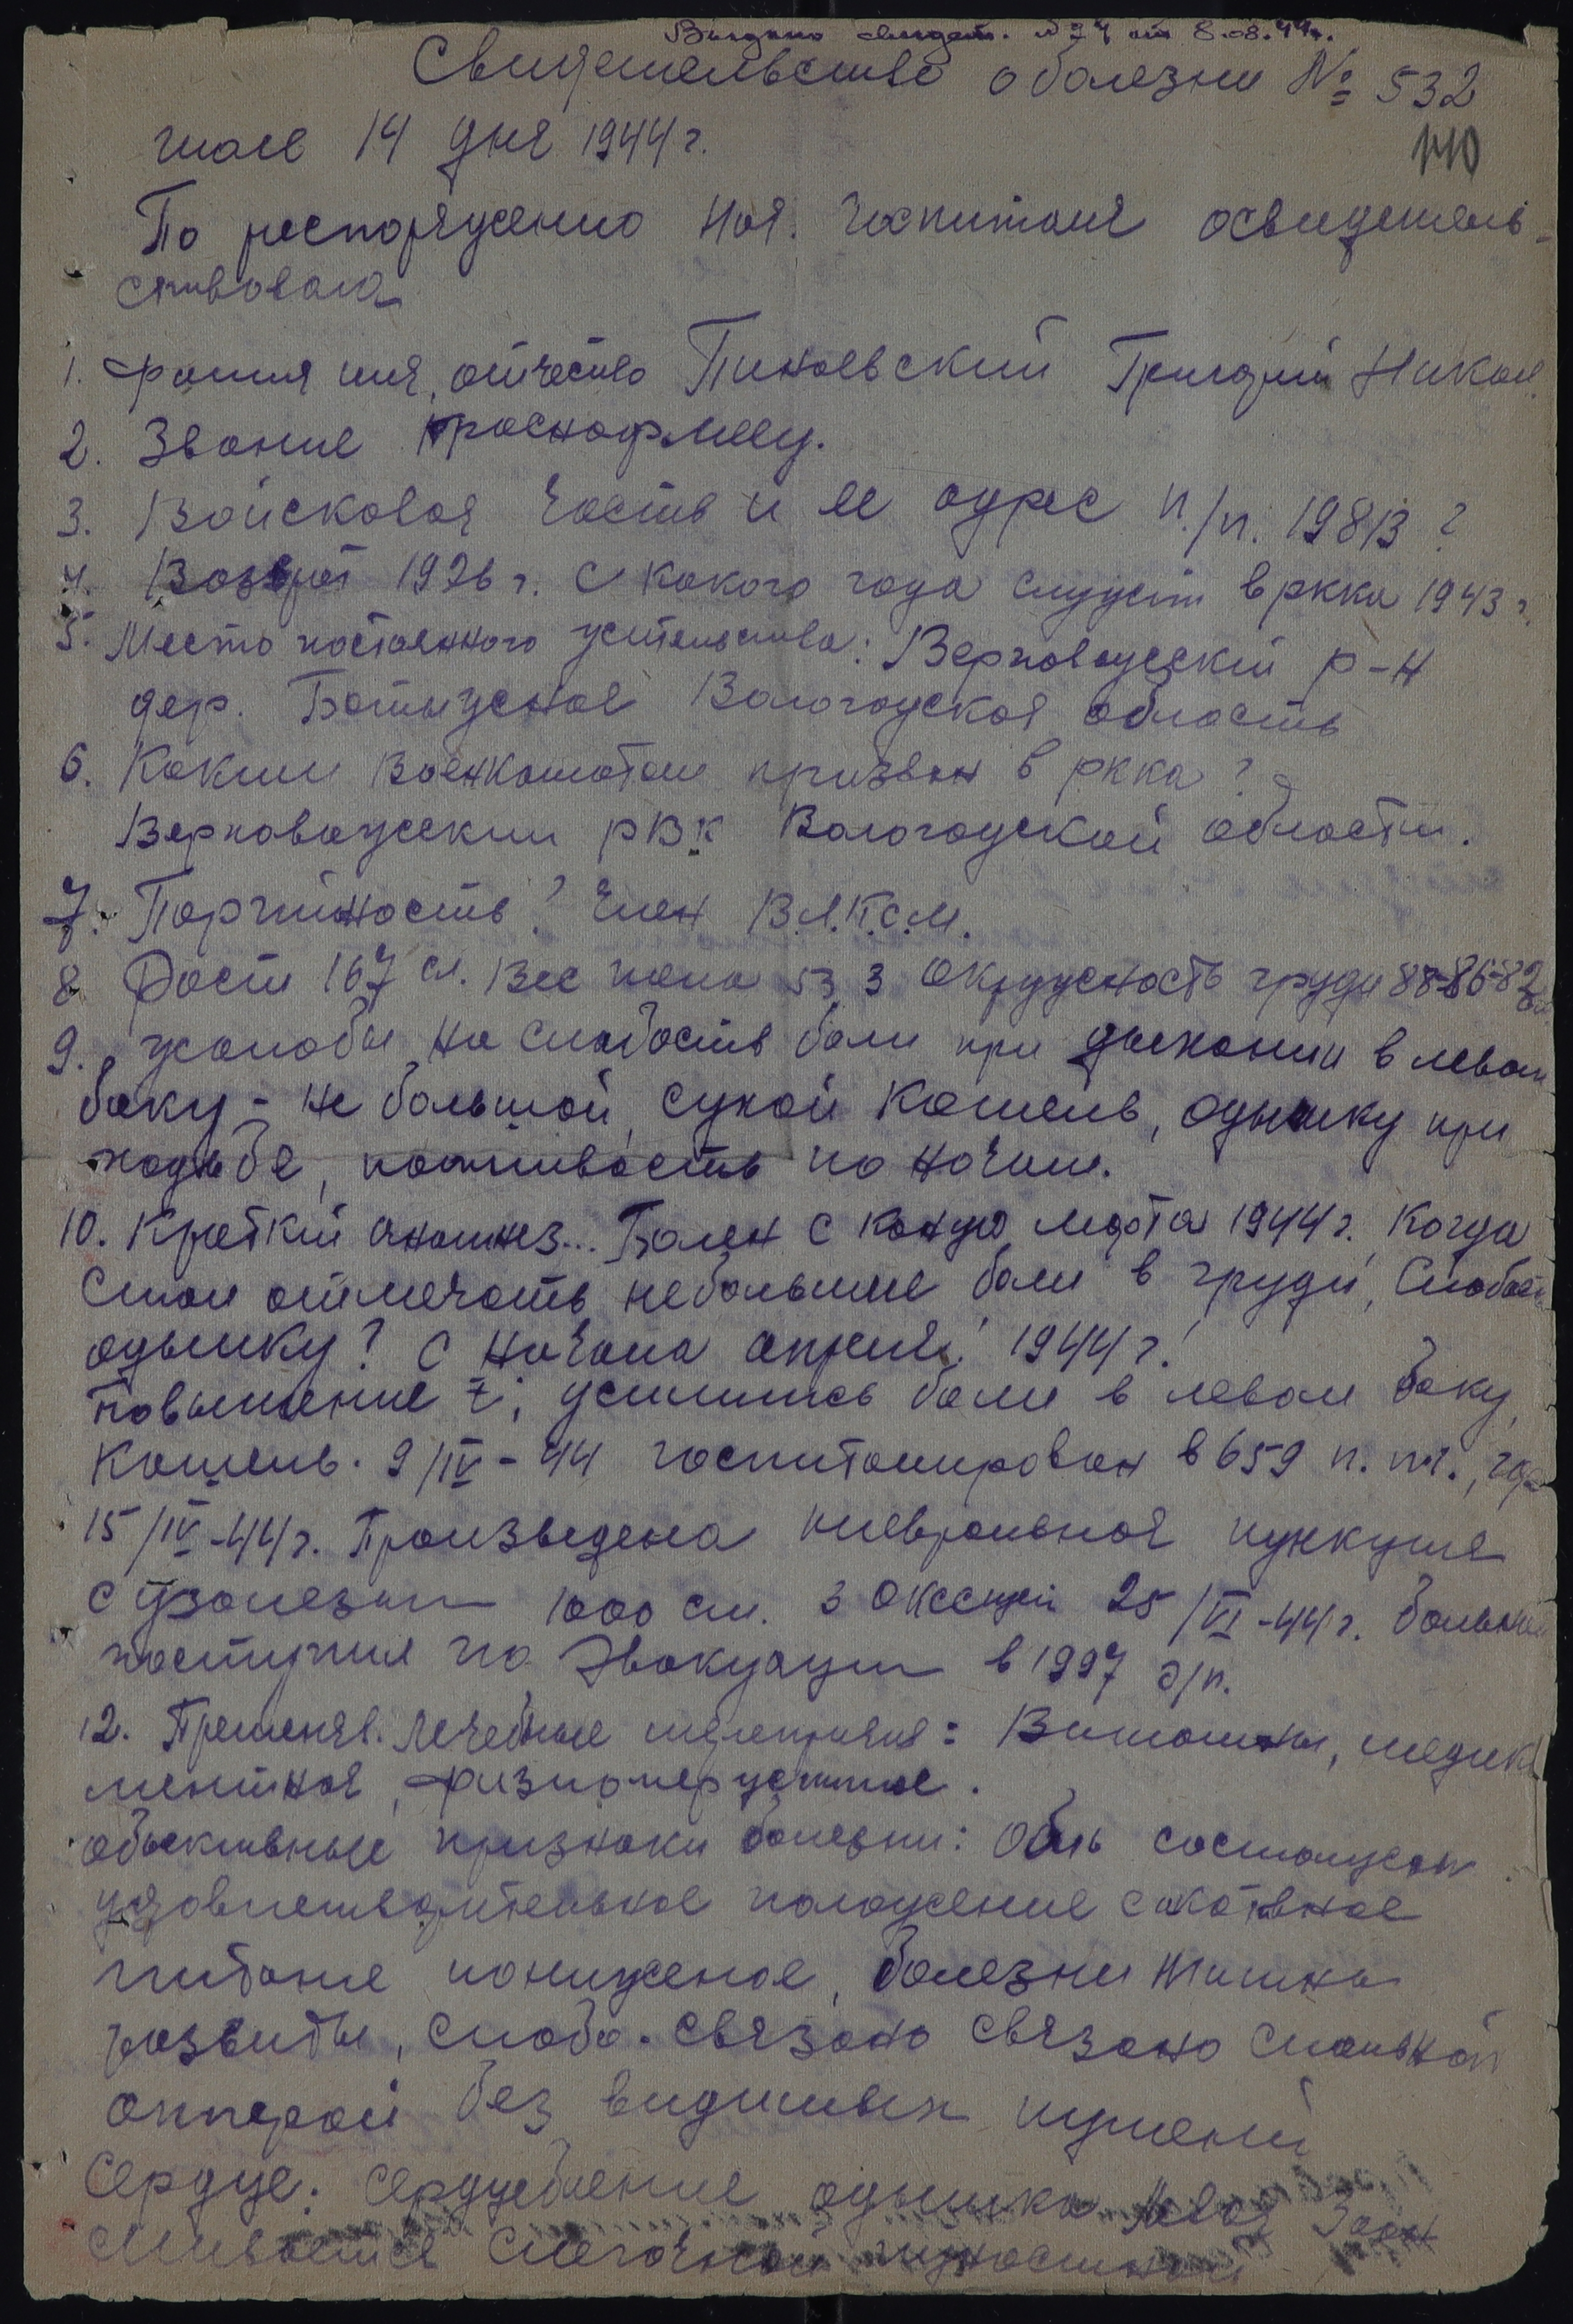 Выдано свидет. №74 от 8.08.44г.
Свидетельство о болезни № 532
июле 14 дня 1944 г.
110
По распоряжению нач. госпиталя освидетель-
ствовала
1. Фамилия имя, отчество Пинаевский Григорий Никол.
2. Звание красноармеец.
3. Войсковая часть и ее адрес п./п. 19813 ?
4. Возраст 1926 г. с какого года служит в ркка 1943 г.
5. Место постоянного жительства: Верховажский р-н
дер. Вологодская область
6. Каким военкоматом призван в ркка?
Верховажским рВк Вологодской области.
7. Партийность? член В.Л.К.С.М.
8 Рост 167 см. Вес тела 53,3 окружность груди 88-86-82
9. жалобы на слабость боли при дыхании в левом
боку - не большой, сухой кашель, одышку при
ходьбе, потливость по ночам.
10. Краткий анамнез... Болен с конца марта 1944 г. когда
стал отмечать небольшие боли в груди, слабость
одышку? с начала апреля 1944 г.
повышение t°, усилились боли в левом боку,
кашель. 9/IV-44 госпитализирован в 659 п.п.г., где
15/IV-44 г. Произведена плевральная пункция
с удалезием 1000 см. 3 25/VI-44 г. больной
поступил по эвакуации в 1997 э/п.
12. Применял. лечебные мероприятия: Витамины, медика
ментная,
объективные признаки болезни: Общ состояние
удовлетворительное положение
питание пониженое,
развиты, слабо. связано связано
без видимых
Сердце: Сердцебиение одышка левая
сливается